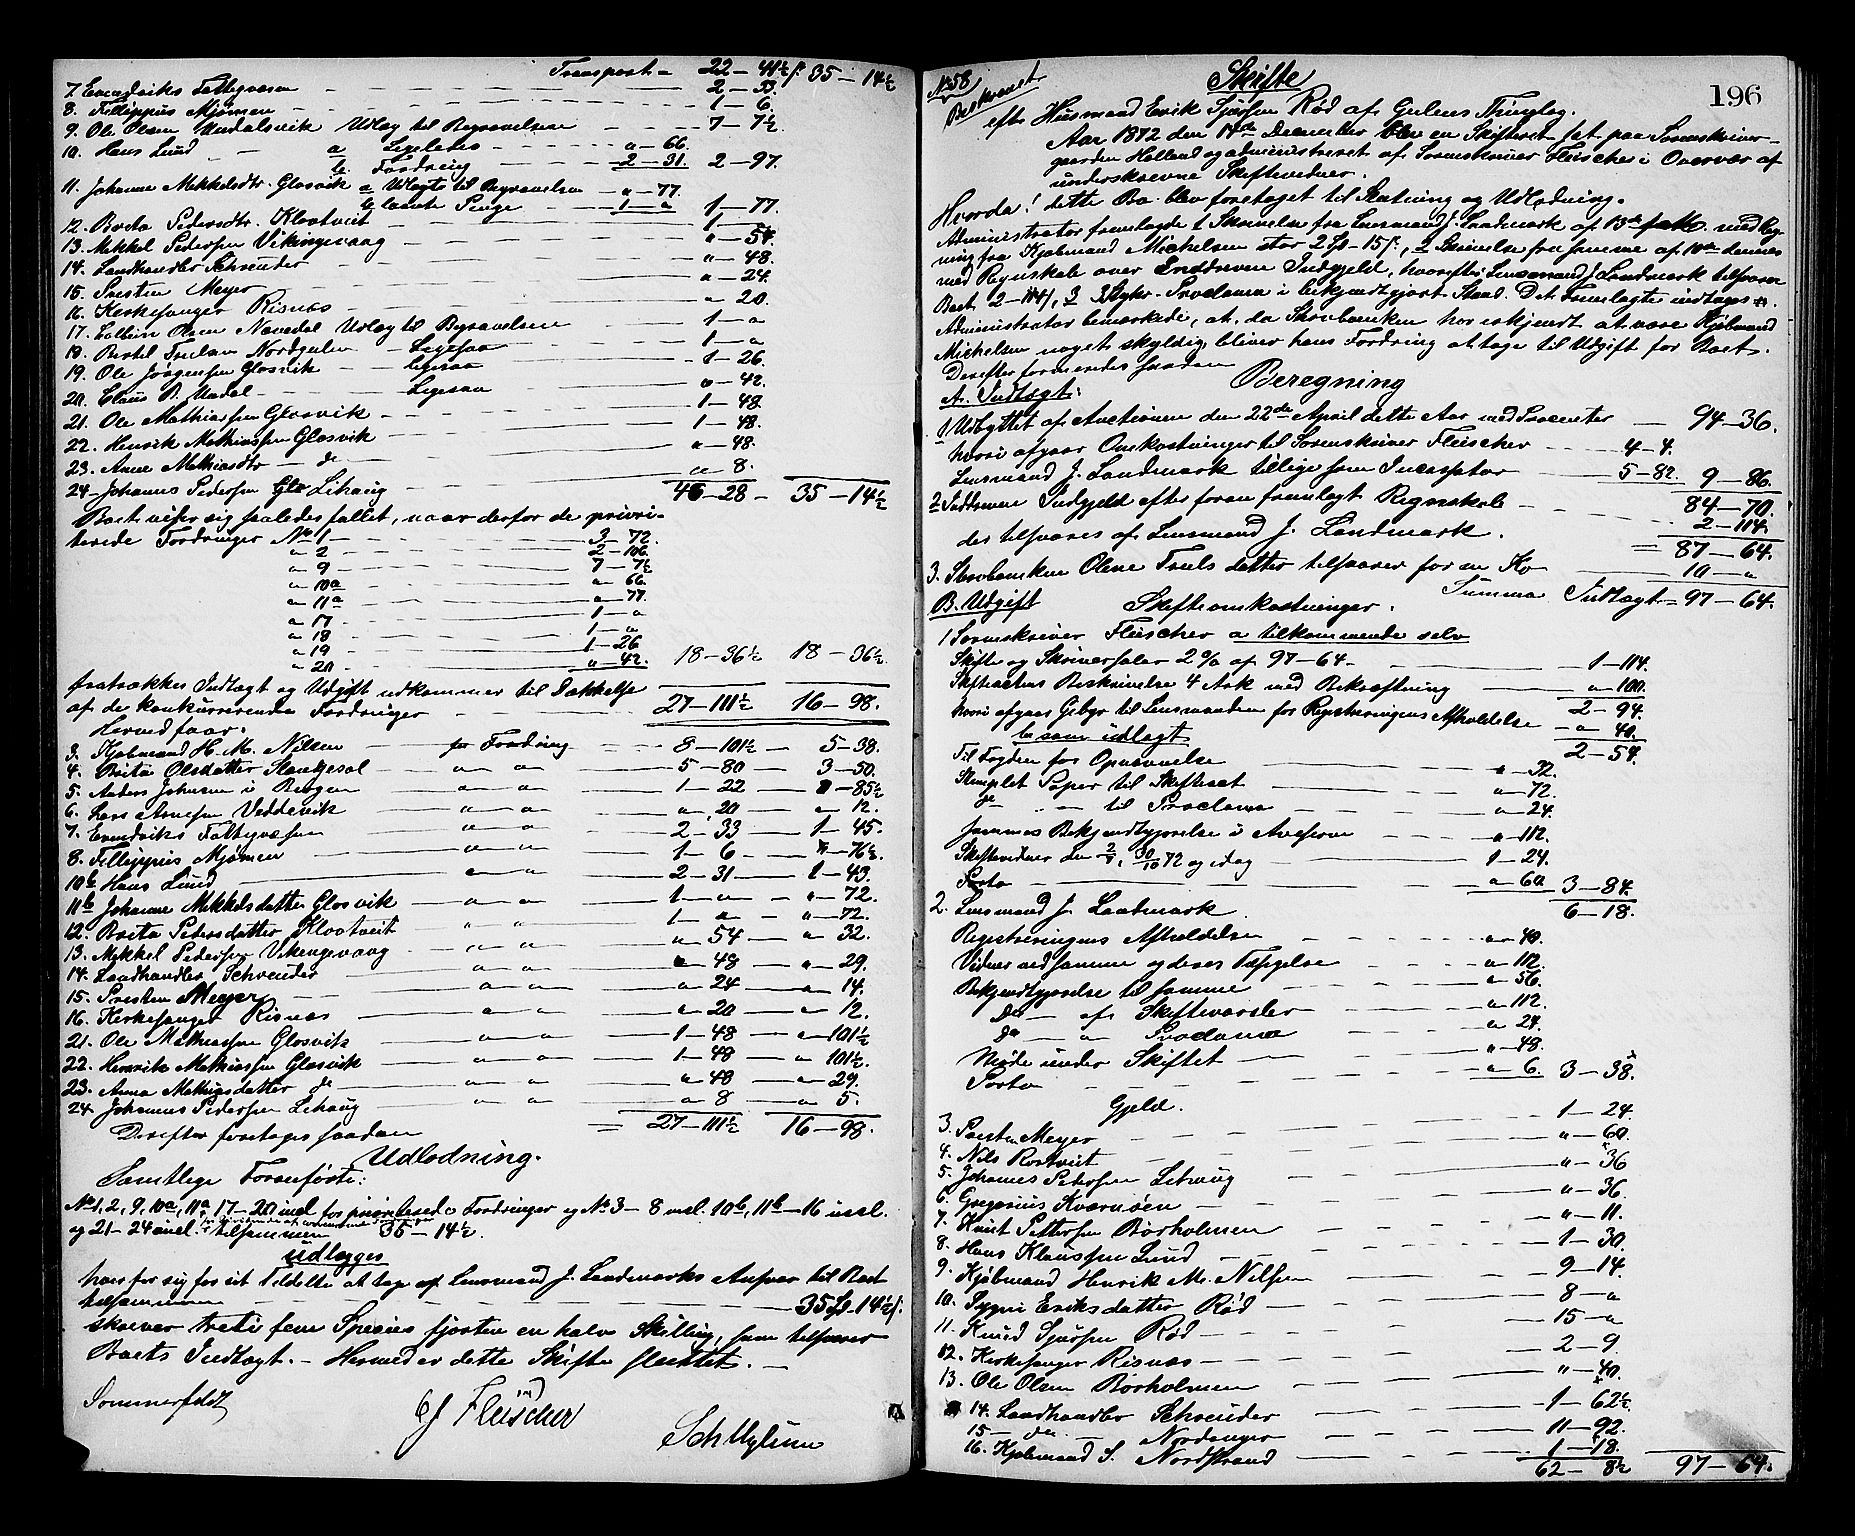 Transport - 22 - 41½ ß 35 - 14½
7. Evindviks Fattigvæsen - 2 - 33.
8. Fillippus Mjømen - 1 - 6.
9. Ole Olsen Undalsvik Udlæg til Begravelsen - 7 - 7½
10. Hans Lund - a Ligeledes - " - 66.
b. Fordring - 2 - 31. 2 - 97.
11. Johanne Mikkelsdtr. Glosvik a Udlagte til Begravelsen - " - 77.
b laante Penge - 1 - " 1 - 77.
12. Brita Pedersdtr. Klovtveit - 1 - "
13. Mikkel Pedersen Vikingevaag - " - 54.
14. Landhandler Schreuder - " - 48.
15. Presten Meyer - " - 24.
16. Kirkesanger Risnæs - " - 20.
17. Olsen Nævedal Udlæg til Begravelsen - 1 - "
18. Bertil Nordgulen - Ligesaa - 1 - "
19. Ole Jørgensen Glosvik - Ligesaa - 1 - 26.
20. Claus P. Undal - Ligesaa - " - 42.
21. Ole Mathiassen Glosvik - 1 - 48.
22. Henrik Mathiassen Glosvik - 1 - 48.
23. Anne Mathiasdtr - do - " - 48.
24 - Johannes Pedersen Lihaug - " 8.
46 - 28 - 35 - 14½
Boet viser sig saaledes fallit, naar derfor de privi-
terede Fordringer No 1 - 3 - 72.
" 2 - 2 - 106.
" 9 - 7 - 7½
" 10a - " 66
" 11a - " - 77.
" 17 - 1 - "
" 18 - 1 - "
" 19 - 1 - 26
" 20 - " - 42. 18 - 36½ 18 - 36½
fratrækkes Indtægt og Udgift udkommer til Dækkelse
af de konkurrerende Fordringer - 27 - 111½ 16 - 98.
Herved faar:
3. Kjøbmand H. M. Nilsen - for Fordring - 8 - 101½ - 5 - 38.
4. Brita Olsdatter - " " 5 - 80 - 3 - 50.
5. Anders Johnsen i Bergen " " 1 - 22 - " - 85½
6. Lars Arnesen Veddevik " " " 20 - " 12.
7. Evindviks Fattigvæsen " " 2 - 33 - 1 - 45.
8. Fillippus Mjømen - " " 1 - 6 - " - 76½
10b Hans Lund - " " 2 - 31 - 1 - 43.
11b Johanne Mikkelsdatter Glosvik - " " 1 - " - " - 72.
12. Brita Pedersdatter Klovtveit " " 1 - " - " - 72.
13. Mikkel Pedersen Vikingevaag " " " 54 - " 32.
14. Landhandler Schreuder - " " " 48 - " - 29.
15. Presten Meyer - " " " 24 - " 14.
16. Kirkesanger Risnæs - " " " 20 - " 12.
21. Ole Mathiassen Glosvik - " " 1 - 48 - " 101½
22. Henrik Mathiassen Glosvik - " " 1 - 48 - " 101½
23. Anna Mathiasdatter do - " " " 48 - " - 29.
24. Johannes Pedersen Lihaug - " " " 8 - " 5.
= 27 - 111½ 16 - 98.
Derefter foretoges saadan
Udlodning.
Samtlige Foranførte:
No 1, 2, 9, 10a, 11a, 17 - 20 incl for prioriterede Fordringer og No 3 - 8 incl. 10b, 11b - 16 incl.
og 21 - 24 incl. tilsammen 35 - 14½.
udlægges
hver for sig for sit Tildelte at tage af Lensmand J. Landmarks Ansvar til Boet
tilsammen - 35 Sp. 14½ ß.
skriver treti fem Species fjorten en halv Skilling, som tilsvarer
Boets Indtægt. - Hermed er dette Skifte sluttet. -
Sommerfeldt
CJ Fleischer
Sch Uglum
196
No 58
Beskrevet
Skifte
efter Husmand Erik Sjursen Rød af Gulens Thinglag.
Aar 1872 den 14de December blev en Skifteret sat paa Sorenskriver-
gaarden Holland og administreret af Sorenskriver Fleischer i Overvær af
underskrevne Skiftevidner.
Hvorda! dette Bo blev foretaget til Slutning og Udlodning.
Administrator fremlagde 1 Skrivelse fra Lensmand J. Landmark af 13de med Reg-
ning fra Kjøbmand Michelsen stor 2 Sp - 15 ß., 2 Skrivelse fra samme af 10de dennes
med Regnskab over Inddreven Indgjeld, hvorefter Lensmand J. Landmark tilsvarer
Boet 2 - 114 ß, 3 3 Stykr. Proclama i bekjendtgjort Stand. Det Fremlagte indtages
Administrator bemærkede, at da Skrobenken har erkjendt at være Kjøbmand
Michelsen noget skyldig, bliver hans Fordring at tage til Udgift for Boet.
Derefter foranledes saadan
Beregning
A. Indtægt:
1 Udbyttet af Auctionen den 22de April dette Aar med Procenter - 94 - 36.
hvori afgaar Omkostninger til Sorenskriver Fleischer - 4 - 4.
Lensmand J. Landmark tillige som Incassator - 5 - 82. 9 - 86.
84 - 70.
2 Inddrevne Indgjeld efter foran fremlagt Regnskab - 2 - 114.
der tilsvares af Lensmand J. Landmark. = 87 - 64.
3. Olene Truls datter tilsvarer for en Ko - 10 - "
Summa Indtægt = 97 - 64.
B. Udgift Skifteomkostninger.
1 Sorenskriver Fleischer a tilkommende selv
Skifte og Skriversalar 2 % af 97 - 64 - 1 - 114.
Skifteactens Beskrivelse 4 Ark med Bekræftning - " - 100.
2 - 94.
hvori afgaar Gebyr til Lensmanden for Registreringens Afholdelse - " 40.
2 - 54.
b som udlagt
Til Fogden for Opnævnelse - " - 32.
Stemplet Papir til Skifteret - " - 72.
do - " - til Proclama - " - 24.
Sammes Bekjendtgjørelse i Aviserne - " - 112.
Skiftevidner den 2/5, 30/10 72 og idag - 1 - 24.
Porto - " - 60. 3 - 84.
6 - 18.
2. Lensmand J. Landmark.
Registreringens Afholdelse - " - 40.
Vidner ved samme og deres Tilsigelse - " 112.
Bekjendtgjørelse til samme - " - 56.
Do - af Skiftevarsler - " 112.
do - " - Proclama - " - 24.
Møde under Skiftet - " - 48.
Porto - " 6. 3 - 38.
Gjeld.
3. Presten Meyer - 1 - 24.
4. Nils Rortveit - " - 60.
5. Johannes Petersen Lihaug - " - 36
6. Gregorius Kværnøen - " - 36.
7. Knut Pettersen Børholmen - " - 11.
8. Hans Klaussen Lund - 1 - 30.
9. Kjøbmand Henrik M. Nilsen - 9 - 14.
10. Sygni Eriksdatter Rød - 8 - "
11. Knud Sjursen Rød - 15 - "
12. Kirkesanger Risnæs - 2 - 9.
13. Ole Olsen Børholmen - " - 40.
14. Landhandler Schreuder - 1 - 62½
15 - do. - Nordanger - 11 - 92.
16. Kjøbmand S. Nordstrand - 1 - 18.
62 - 8½ 97 - 64.